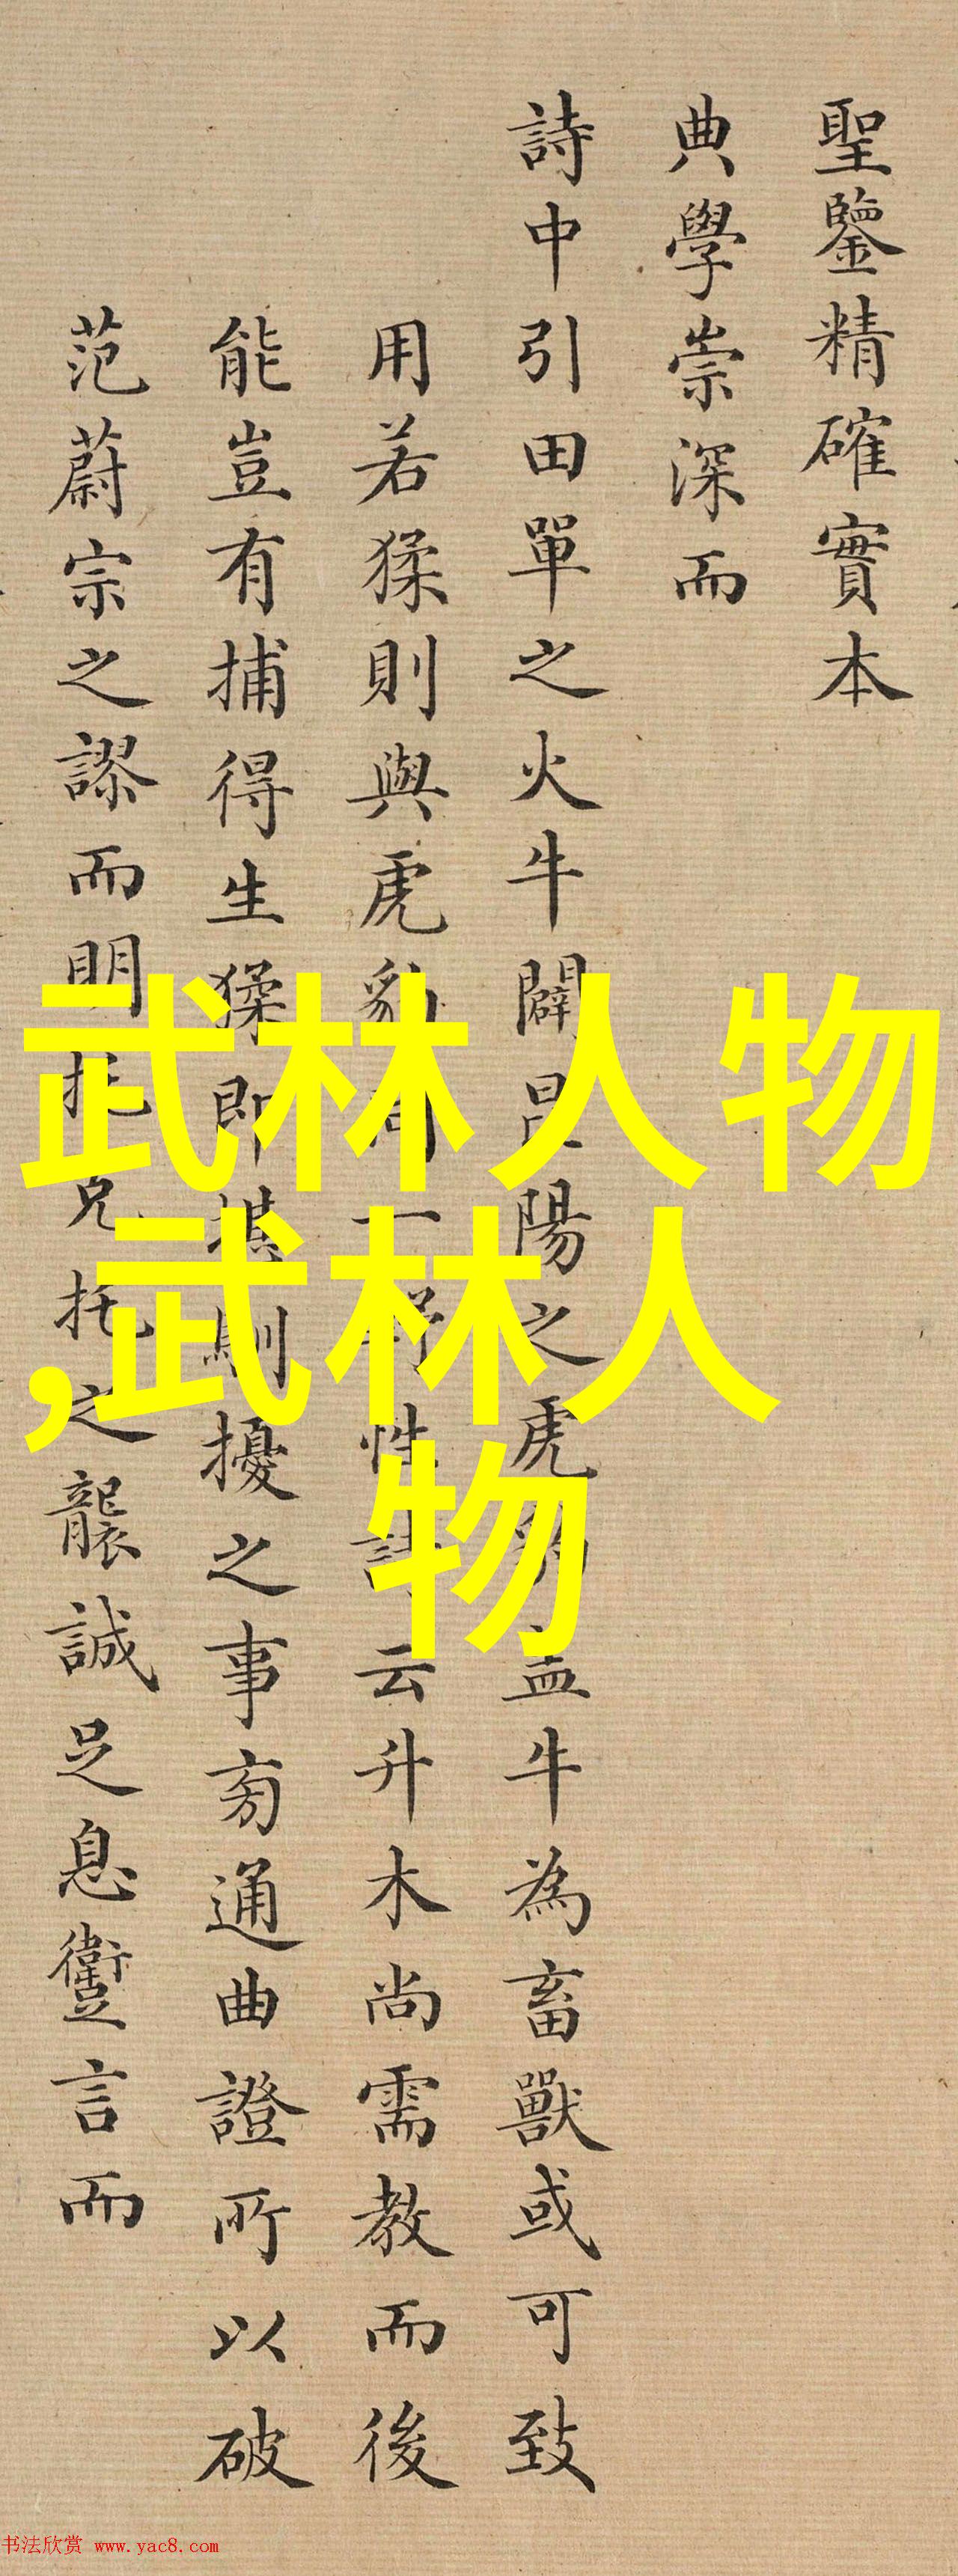 聖鑒精確實本
典學崇深而
詩中引田單之火牛闢昆陽之虎豹盖牛為畜獸或可致
用若猱則與虎豹同一野性詩云升木尚需教而後
能豈有捕得生猱即堪馴擾之事旁通曲證所以破
范蔚宗之謬而明托克托之襲誠足息躗言而
武林人物
,武林人
物
书法欣赏 www.yac8.com